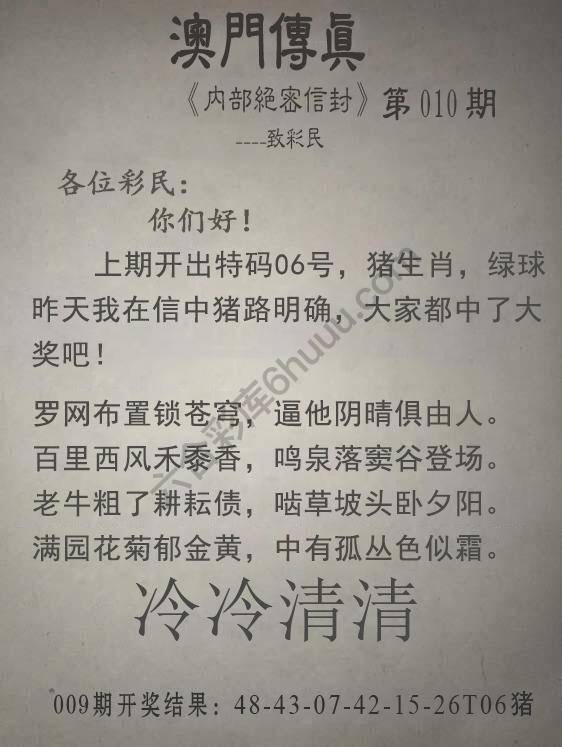 澳門傳眞
《内部絕密信封》第010期
----致彩民
各位彩民：
你们好！
上期开出特码06号，猪生肖，绿球
昨天我在信中猪路明确，大家都中了大
奖吧！
罗网布置锁苍穹，逼他阴晴俱由人。
百里西风禾黍香，鸣泉落窦谷登场。
老牛粗了耕耘债，啮草坡头卧夕阳。
满园花菊郁金黄，中有孤丛色似霜。
冷冷清清
009期开奖结果：48-43-07-42-15-26T06猪
六合彩库6huuu.com